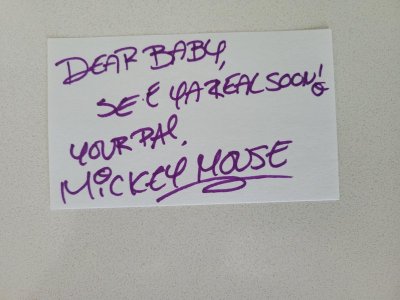 DEAR BABY,
SEE YA REAL SOON!
YOUR PAL.
MICKEY MOUSE